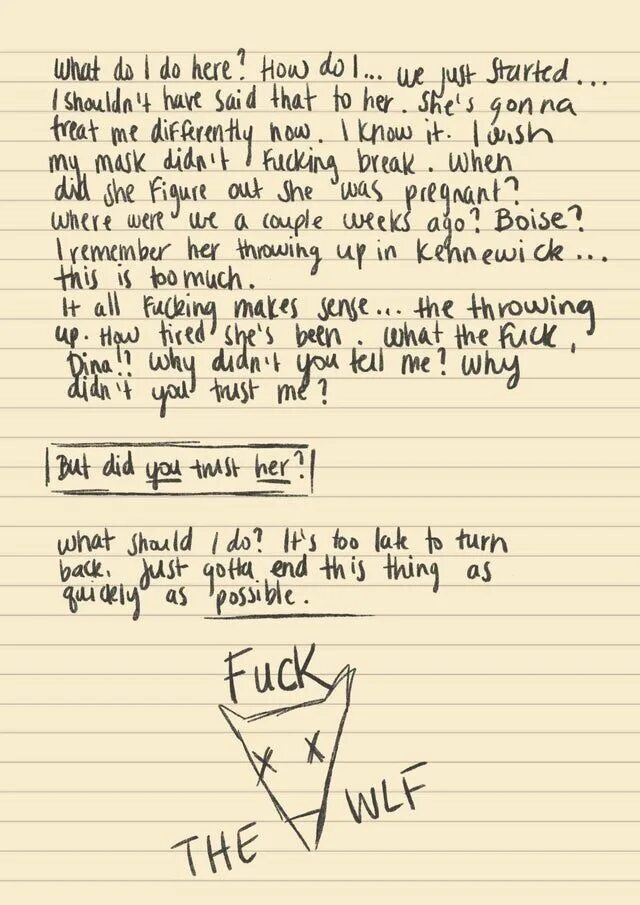 What do I do here? How do I... we just started...
I shouldn't have said that to her. She's gonna
treat me differently now. I know it. I wish
my mask didn't fucking break. When
did she figure out she was pregnant?
Where were we a couple weeks ago? Boise?
I remember her throwing up in Kennewick...
this is too much.
It all fucking makes sense... the throwing
up. How tired she's been. What the fuck,
Dina!? Why didn't you tell me? Why
didn't you trust me?
But did you trust her?
What should I do? It's too late to turn
back. Just gotta end this thing as
quickly as possible.
Fuck
THE WLF